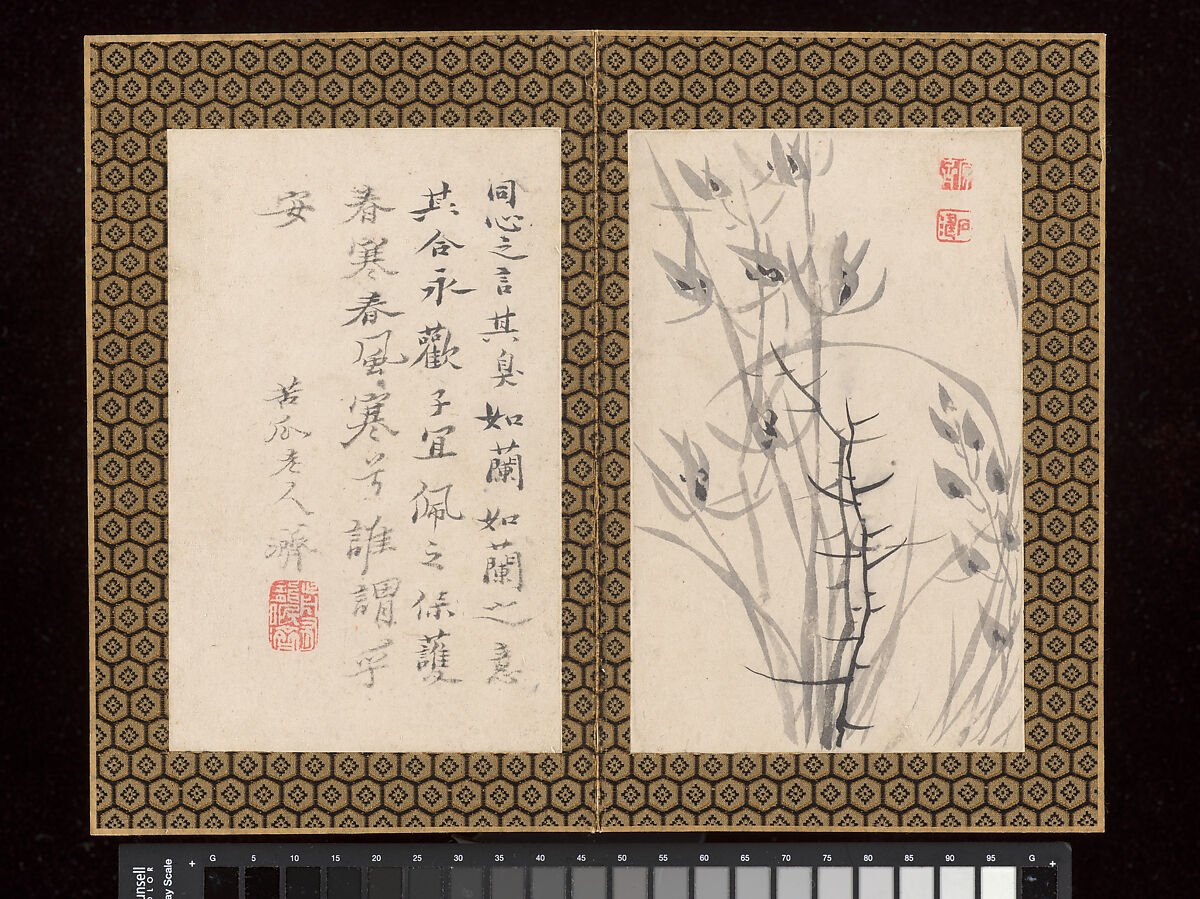 同心之言其臭如蘭如蘭之意
其合永歡子宜佩之保護
春寒春風寒兮誰謂乎
安
苦瓜老人濟
G 5 10 15 20 25 30 35 40 45 50 55 60 65 70 75 80 85 90 95 G